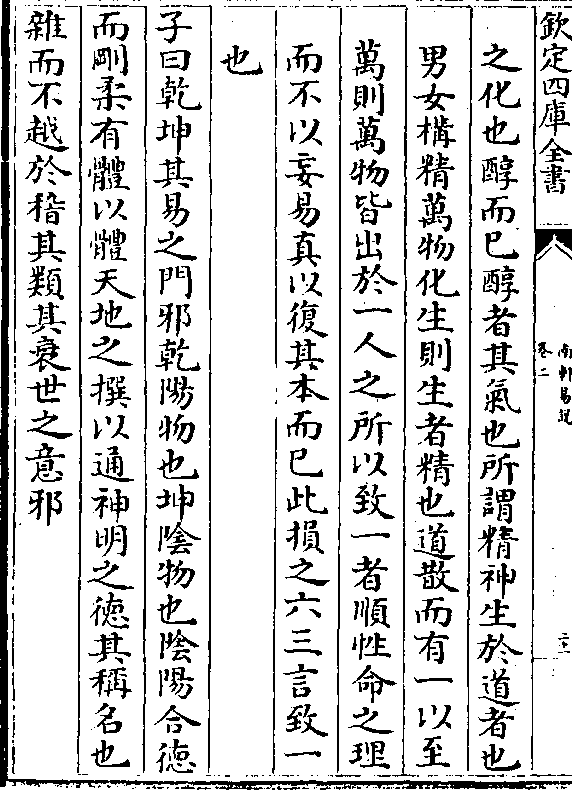 欽定四庫全書
南軒易說
卷二
之化也醇而已醇者其氣也所謂精神生於道者也
男女構精萬物化生則生者精也道散而有一以至
萬則萬物皆出於一人之所以致一者順性命之理
而不以妄易真以復其本而已此損之六三言致一
也
子曰乾坤其易之門邪乾陽物也坤陰物也陰陽合德
而剛柔有體以體天地之撰以通神明之德其稱名也
雜而不越於稽其類其衰世之意邪